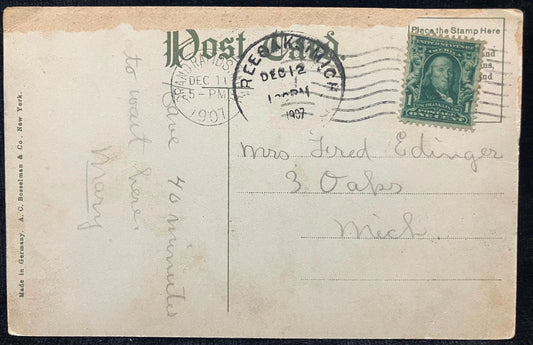 Post Card.
Place the Stamp Here
GRAND RAPIDS
DEC 11
5-PM
1907
THREE OAKS, MICH
DEC 12
1907
UNITED STATES OF AMERICA
FRANKLIN
1
ONE CENT
1
Mrs Fred Edinger
3 Oaks
Mich.
Have 40 minutes
to wait here.
Mary
Made in Germany. A. C. Bosselman & Co. New York.